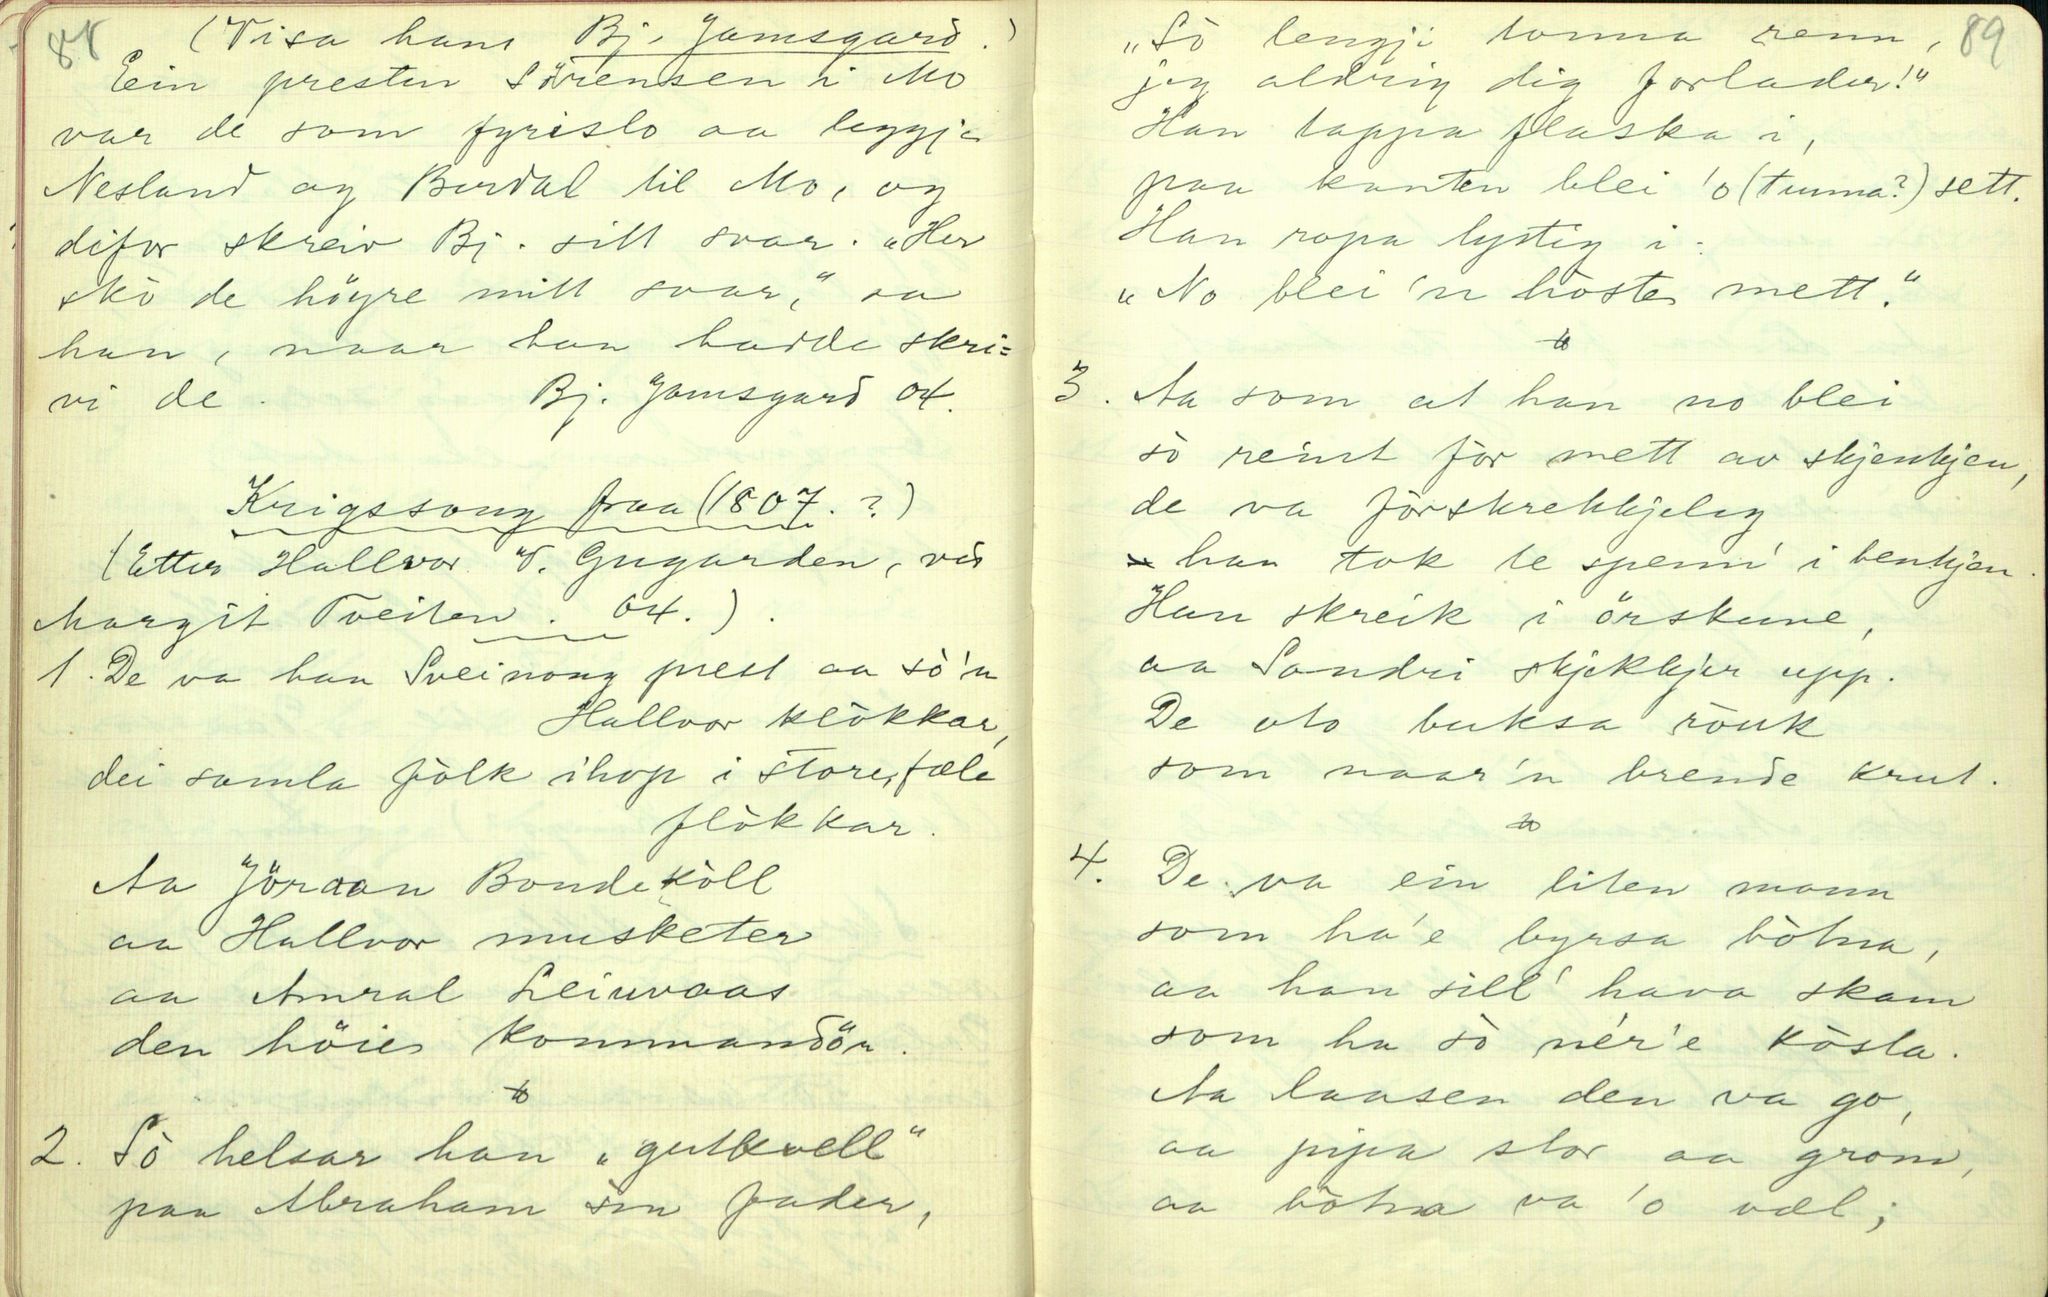 88
(Visa hans Bj. Jamsgard.)
Ein presten Sörensen i Mo
var de som fyrislo aa leggja
Nesland og Burdal til Mo, og
difor skreiv Bj. sitt svar. „Her
skò de höyre mitt svar," sa
han, naar han hadde skri=
vi de. Bj. Jamsgard 04.
Krigssong fraa (1807.?)
(Etter Hallvor V. Gugarden, ved
Margit Tveiten. 04.).
1. De va han Sveinong prest aa sò'n
Hallvor klòkkar,
dei samla fòlk ihop i store, fæle
flòkkar.
Aa Jöraan Bondeköll
aa Hallvor musketer
aa Amral Leiuvaas
den höie kommandör.
2. Sò helsar han „gutkvell"
paa Abraham sin fader,
89
„Sò lengji tonna renn,
jeg aldrig dig forlader!"
Han tappa flaska i,
paa kanten blei 'o (tunna?) sett.
Han ropa lysteg i:
„No blei 'n hòste mett."
3. Aa som at han no blei
sò reint fòr mett av skjenkjen,
de va fòrskrekkjeleg
han tok te spenn' i benkjen.
Han skreik i örskune,
aa Sondri skjekkjer upp.
De oto buksa ròuk
som naar'n brende krut.
4. De va ein liten mann
som ha'e byrsa bòtna,
aa han sill' hava skam
som ha sò nér'e kòsta.
Aa laasen den va go,
aa pipa stor aa grom,
aa bòtna va 'o væl;